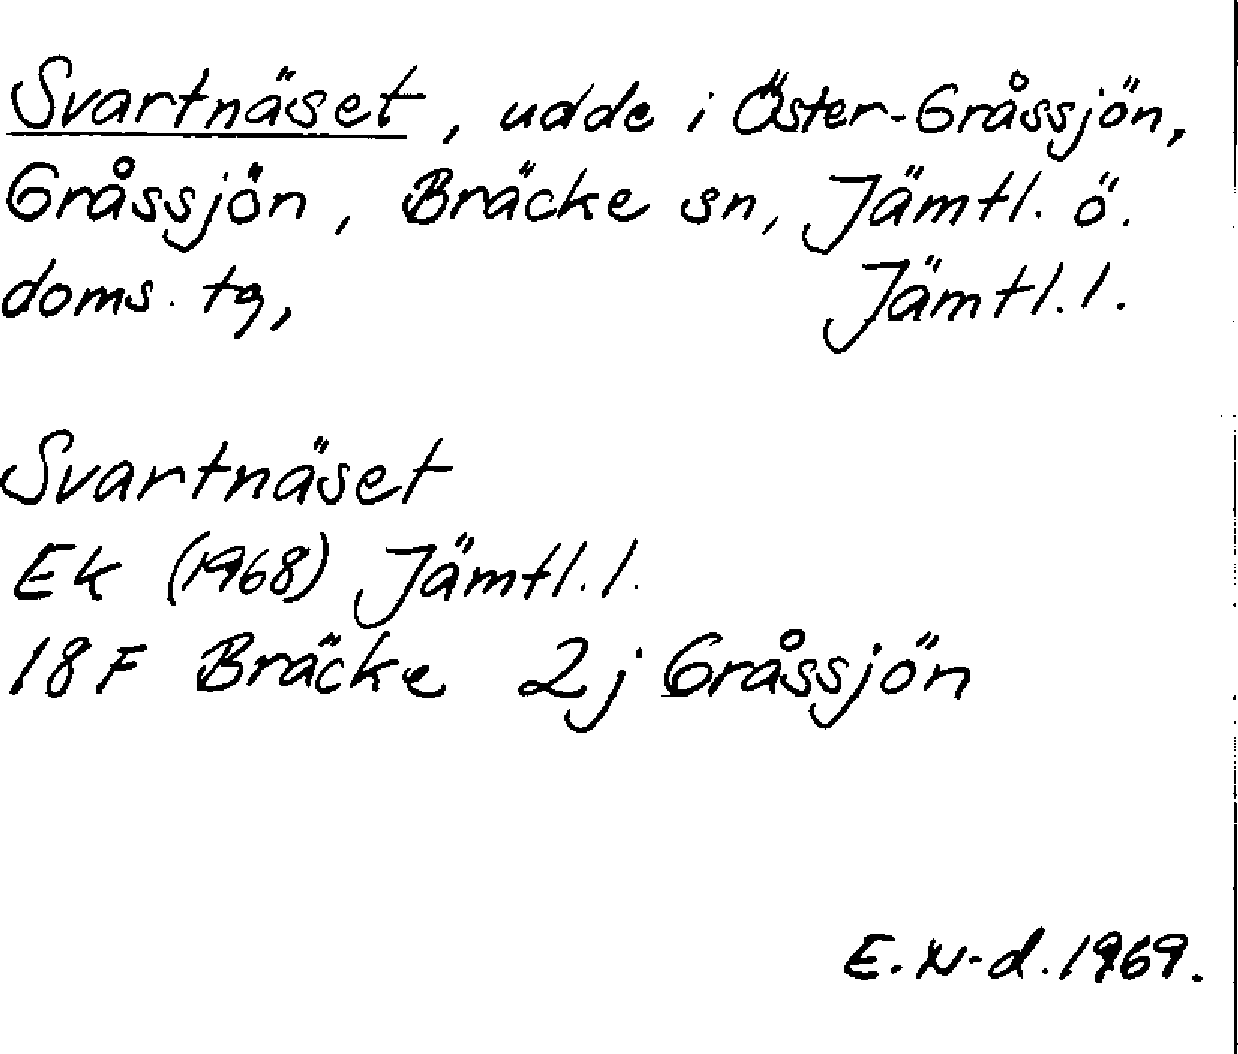 Svartnäset, udde i Öster-Gråssjön,
Gråssjön, Bräcke sn, Jämtl. ö.
doms. tg, Jämtl. l.
Svartnäset
Ek (1968) Jämtl. l.
18 F Bräcke 2j Gråssjön
E. N-d. 1969.